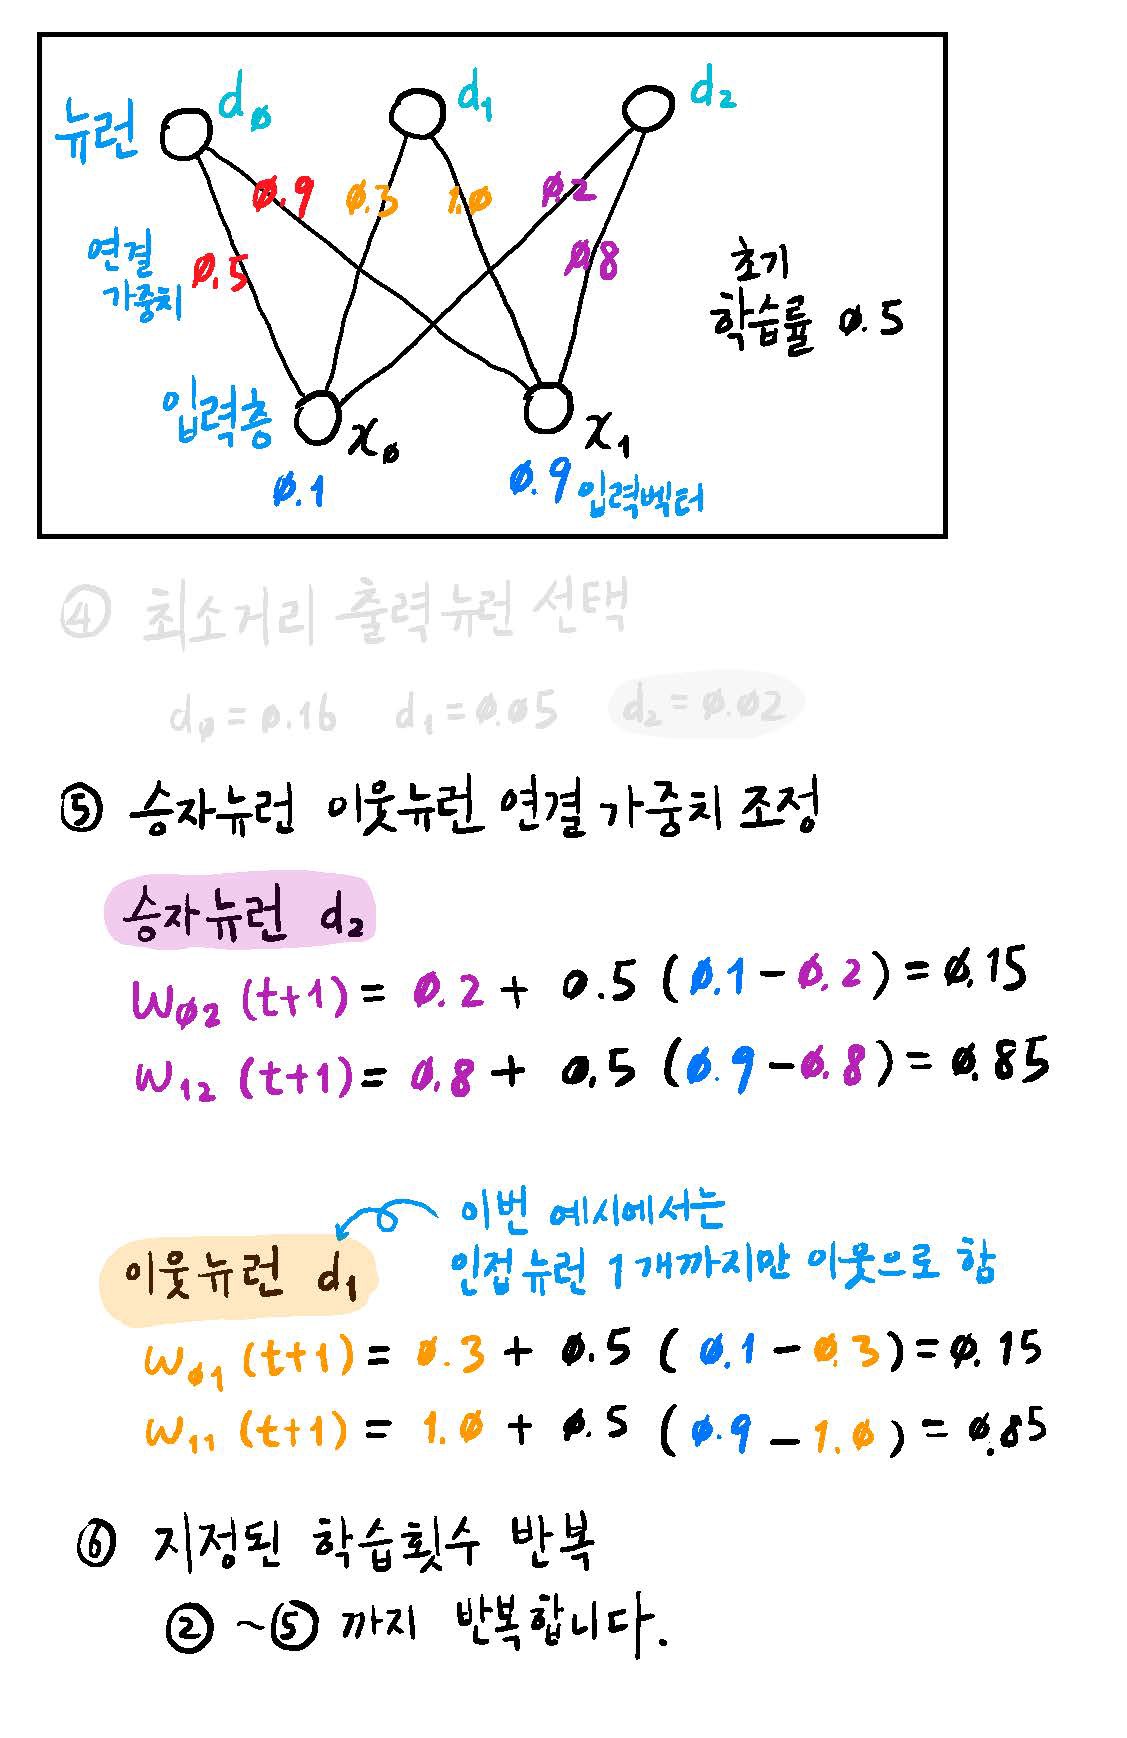 뉴런 dø d1 d2
0.9 0.3 1.0 0.2
연결
가중치 0.5 0.8
초기
학습률 0.5
입력층 xø x1
0.1 0.9 입력벡터
④ 최소거리 출력뉴런 선택
dø = 0.16 d1 = 0.05 d2 = 0.02
⑤ 승자뉴런 이웃뉴런 연결 가중치 조정
승자뉴런 d2
wø2 (t+1) = 0.2 + 0.5 (0.1 - 0.2) = 0.15
w12 (t+1) = 0.8 + 0.5 (0.9 - 0.8) = 0.85
이번 예시에서는
인접뉴런 1개까지만 이웃으로 함
이웃뉴런 d1
wø1 (t+1) = 0.3 + 0.5 (0.1 - 0.3) = 0.15
w11 (t+1) = 1.0 + 0.5 (0.9 - 1.0) = 0.85
⑥ 지정된 학습횟수 반복
② ~ ⑤ 까지 반복합니다.